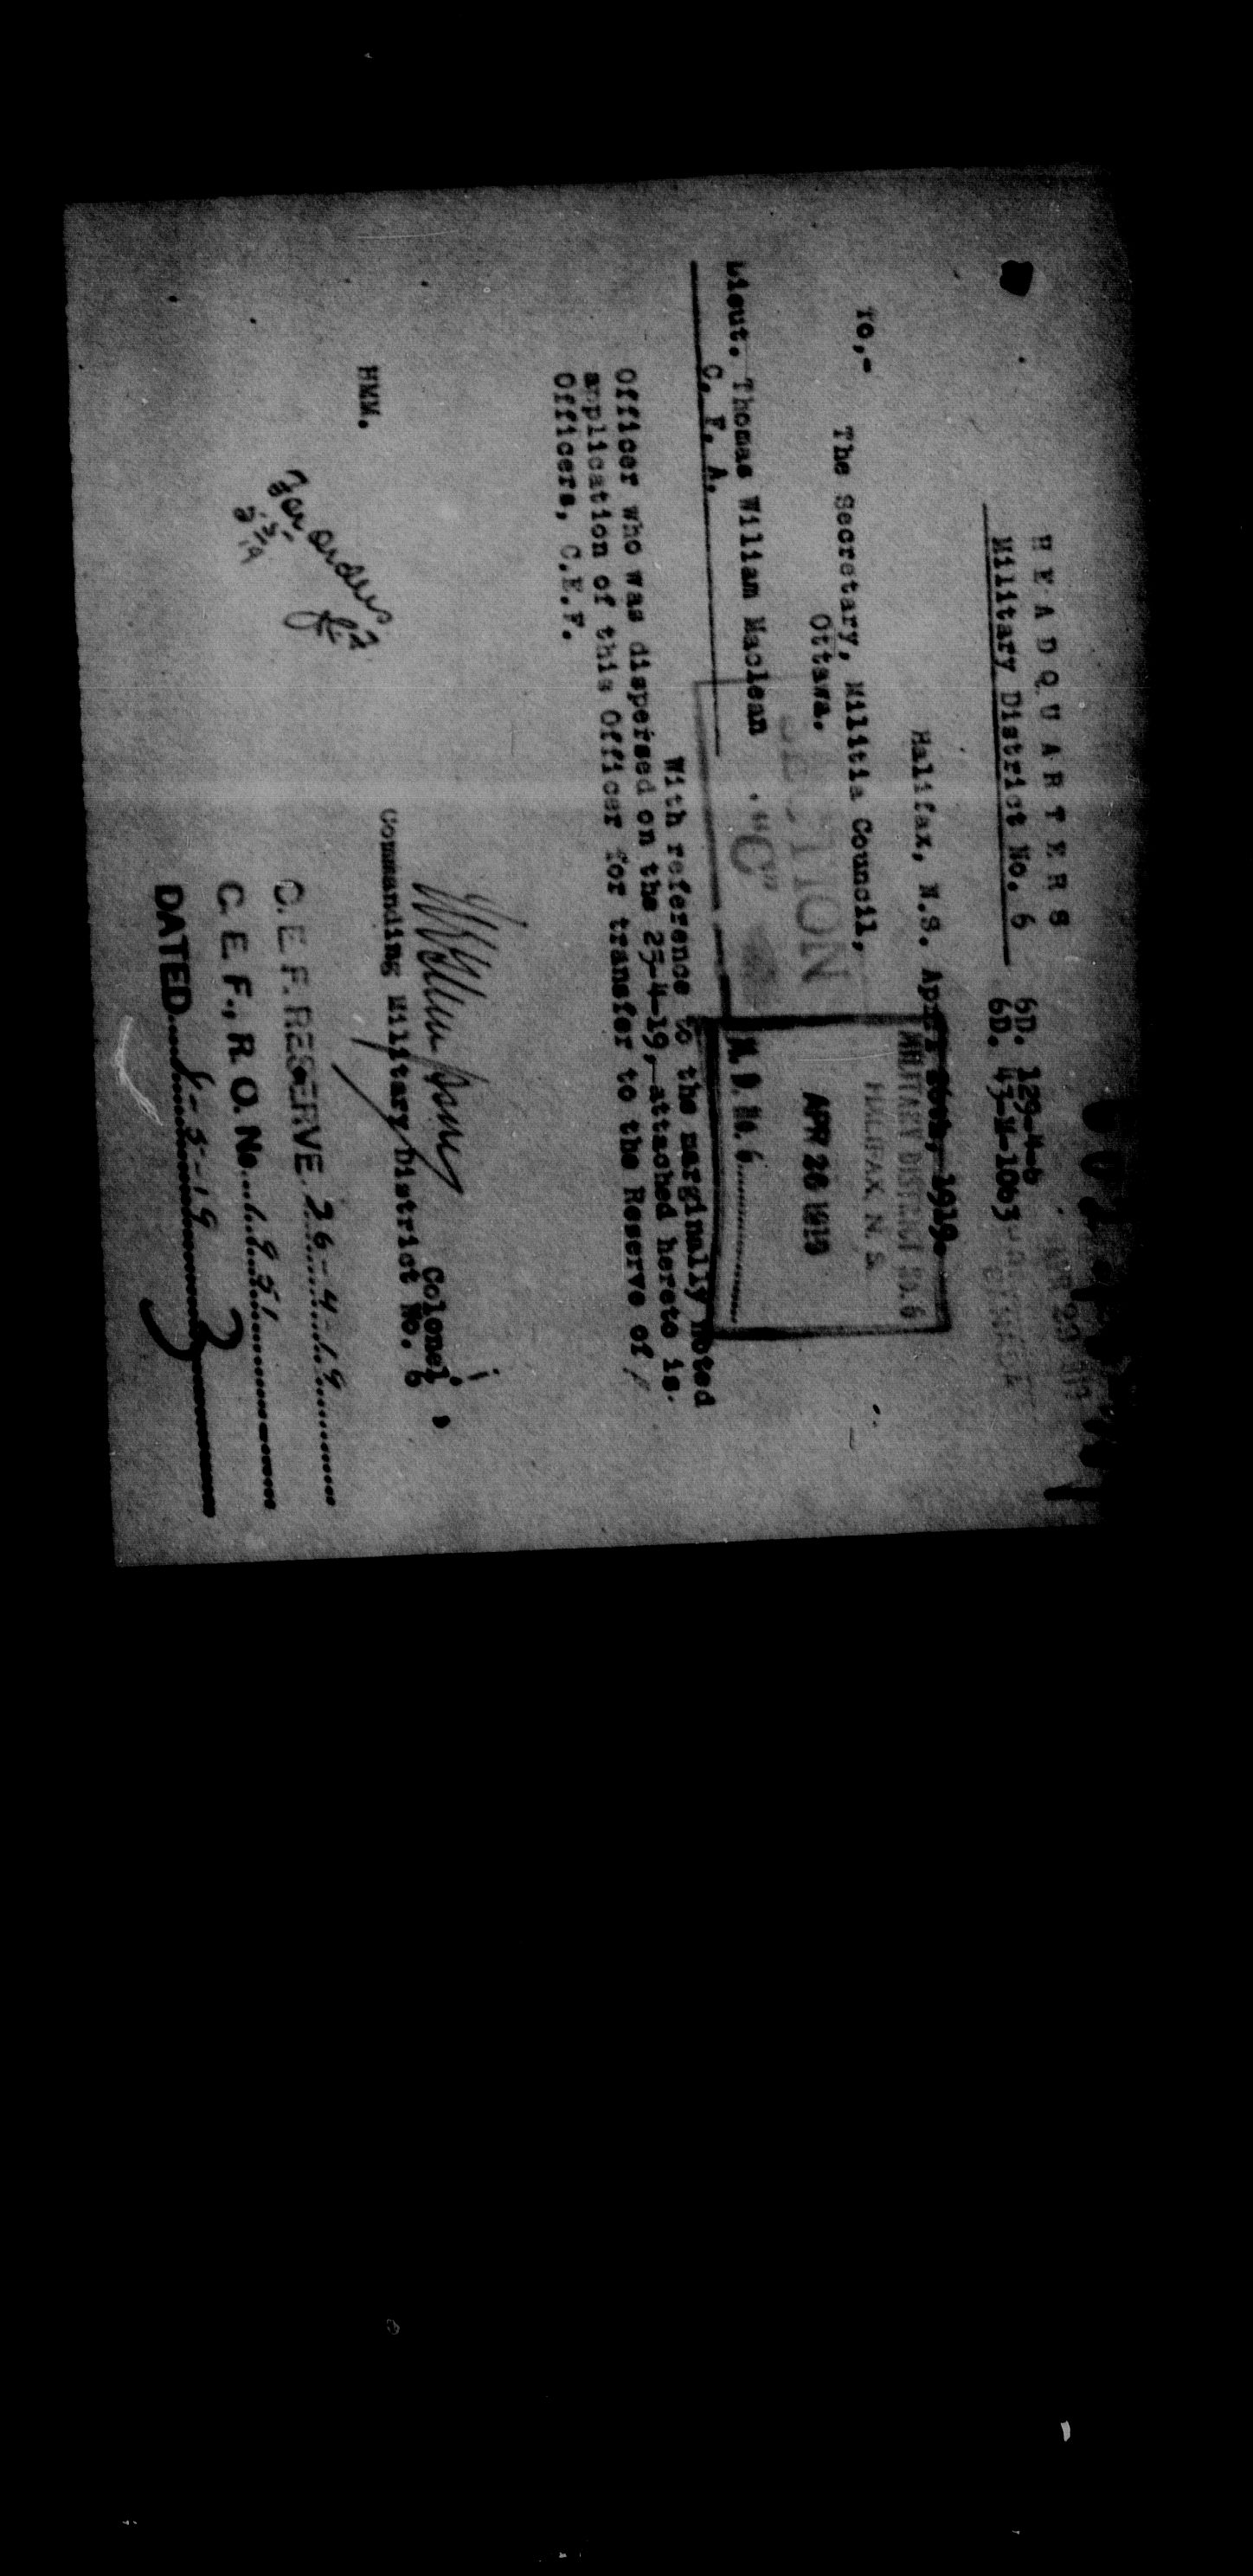 HEADQUARTERS
Military District No. 6
6D. 129-4-6
6D. 43-M-1063
APR 29
Halifax, N.S. 1919.
MILITARY DISTRICT No. 6
HALIFAX, N. S.
APR 26 1919
M. D. No. 6
To,-
The Secretary, Militia Council,
Ottawa.
SECTION
"C"
Lieut. Thomas William Maclean
C. F. A.
With reference to the marginally noted
Officer who was dispersed on the 23-4-19, attached hereto is
application of this Officer for transfer to the Reserve of
Officers, C.E.F.
Colonel
Commanding Military District No. 6
HMM.
For orders
C. E. F. RESERVE 26-4-19
C. E. F., R. O. No. 1851
DATED 8-5-19
3